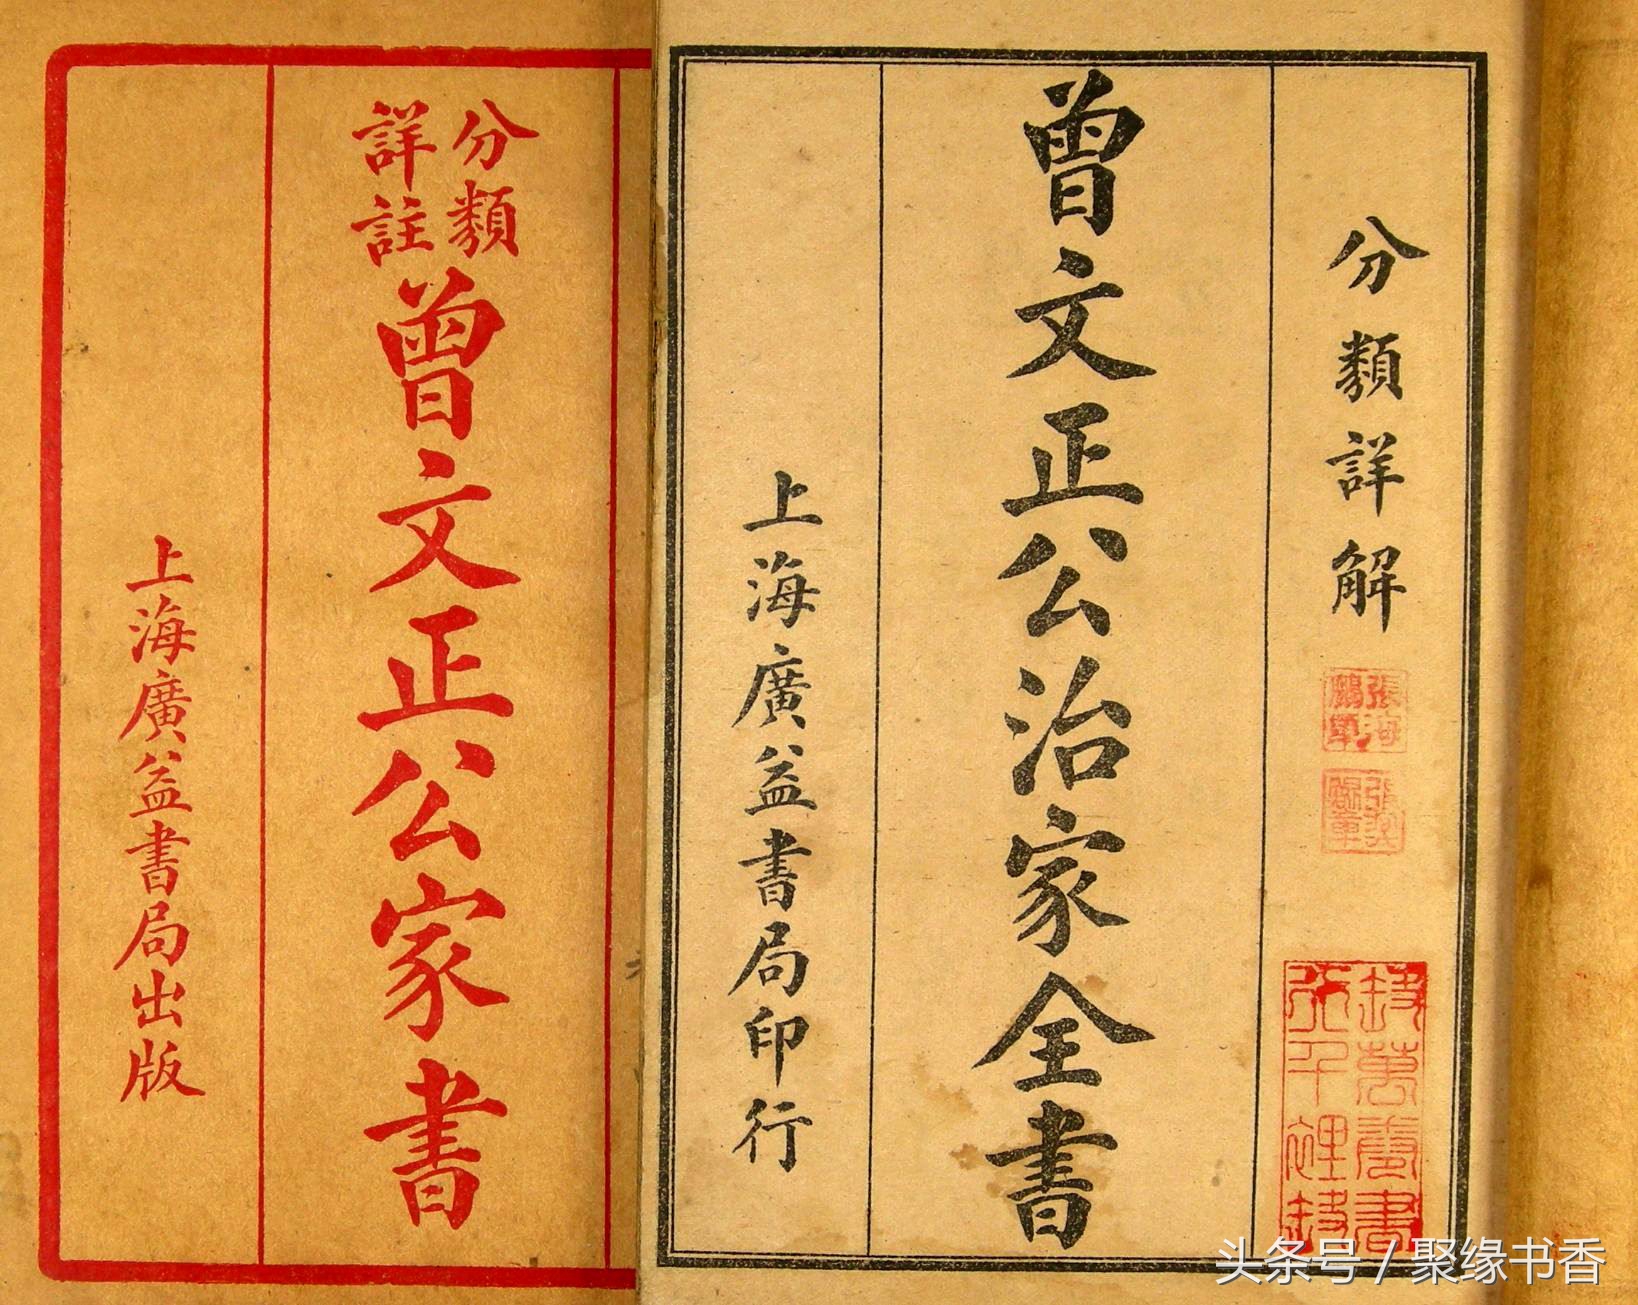 分類詳解
曾文正公治家全書
上海廣益書局印行
分類
詳註
曾文正公家書
上海廣益書局出版
头条号 / 聚缘书香